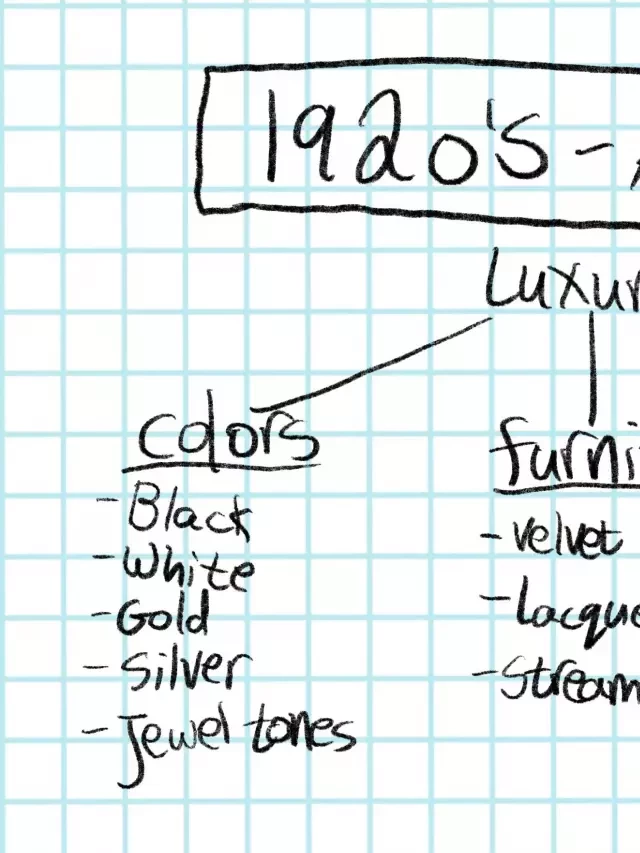 1920's -
Luxur
Colors
- Black
- White
- Gold
- Silver
- Jewel tones
Furni
- Velvet
- Lacque
- Stream